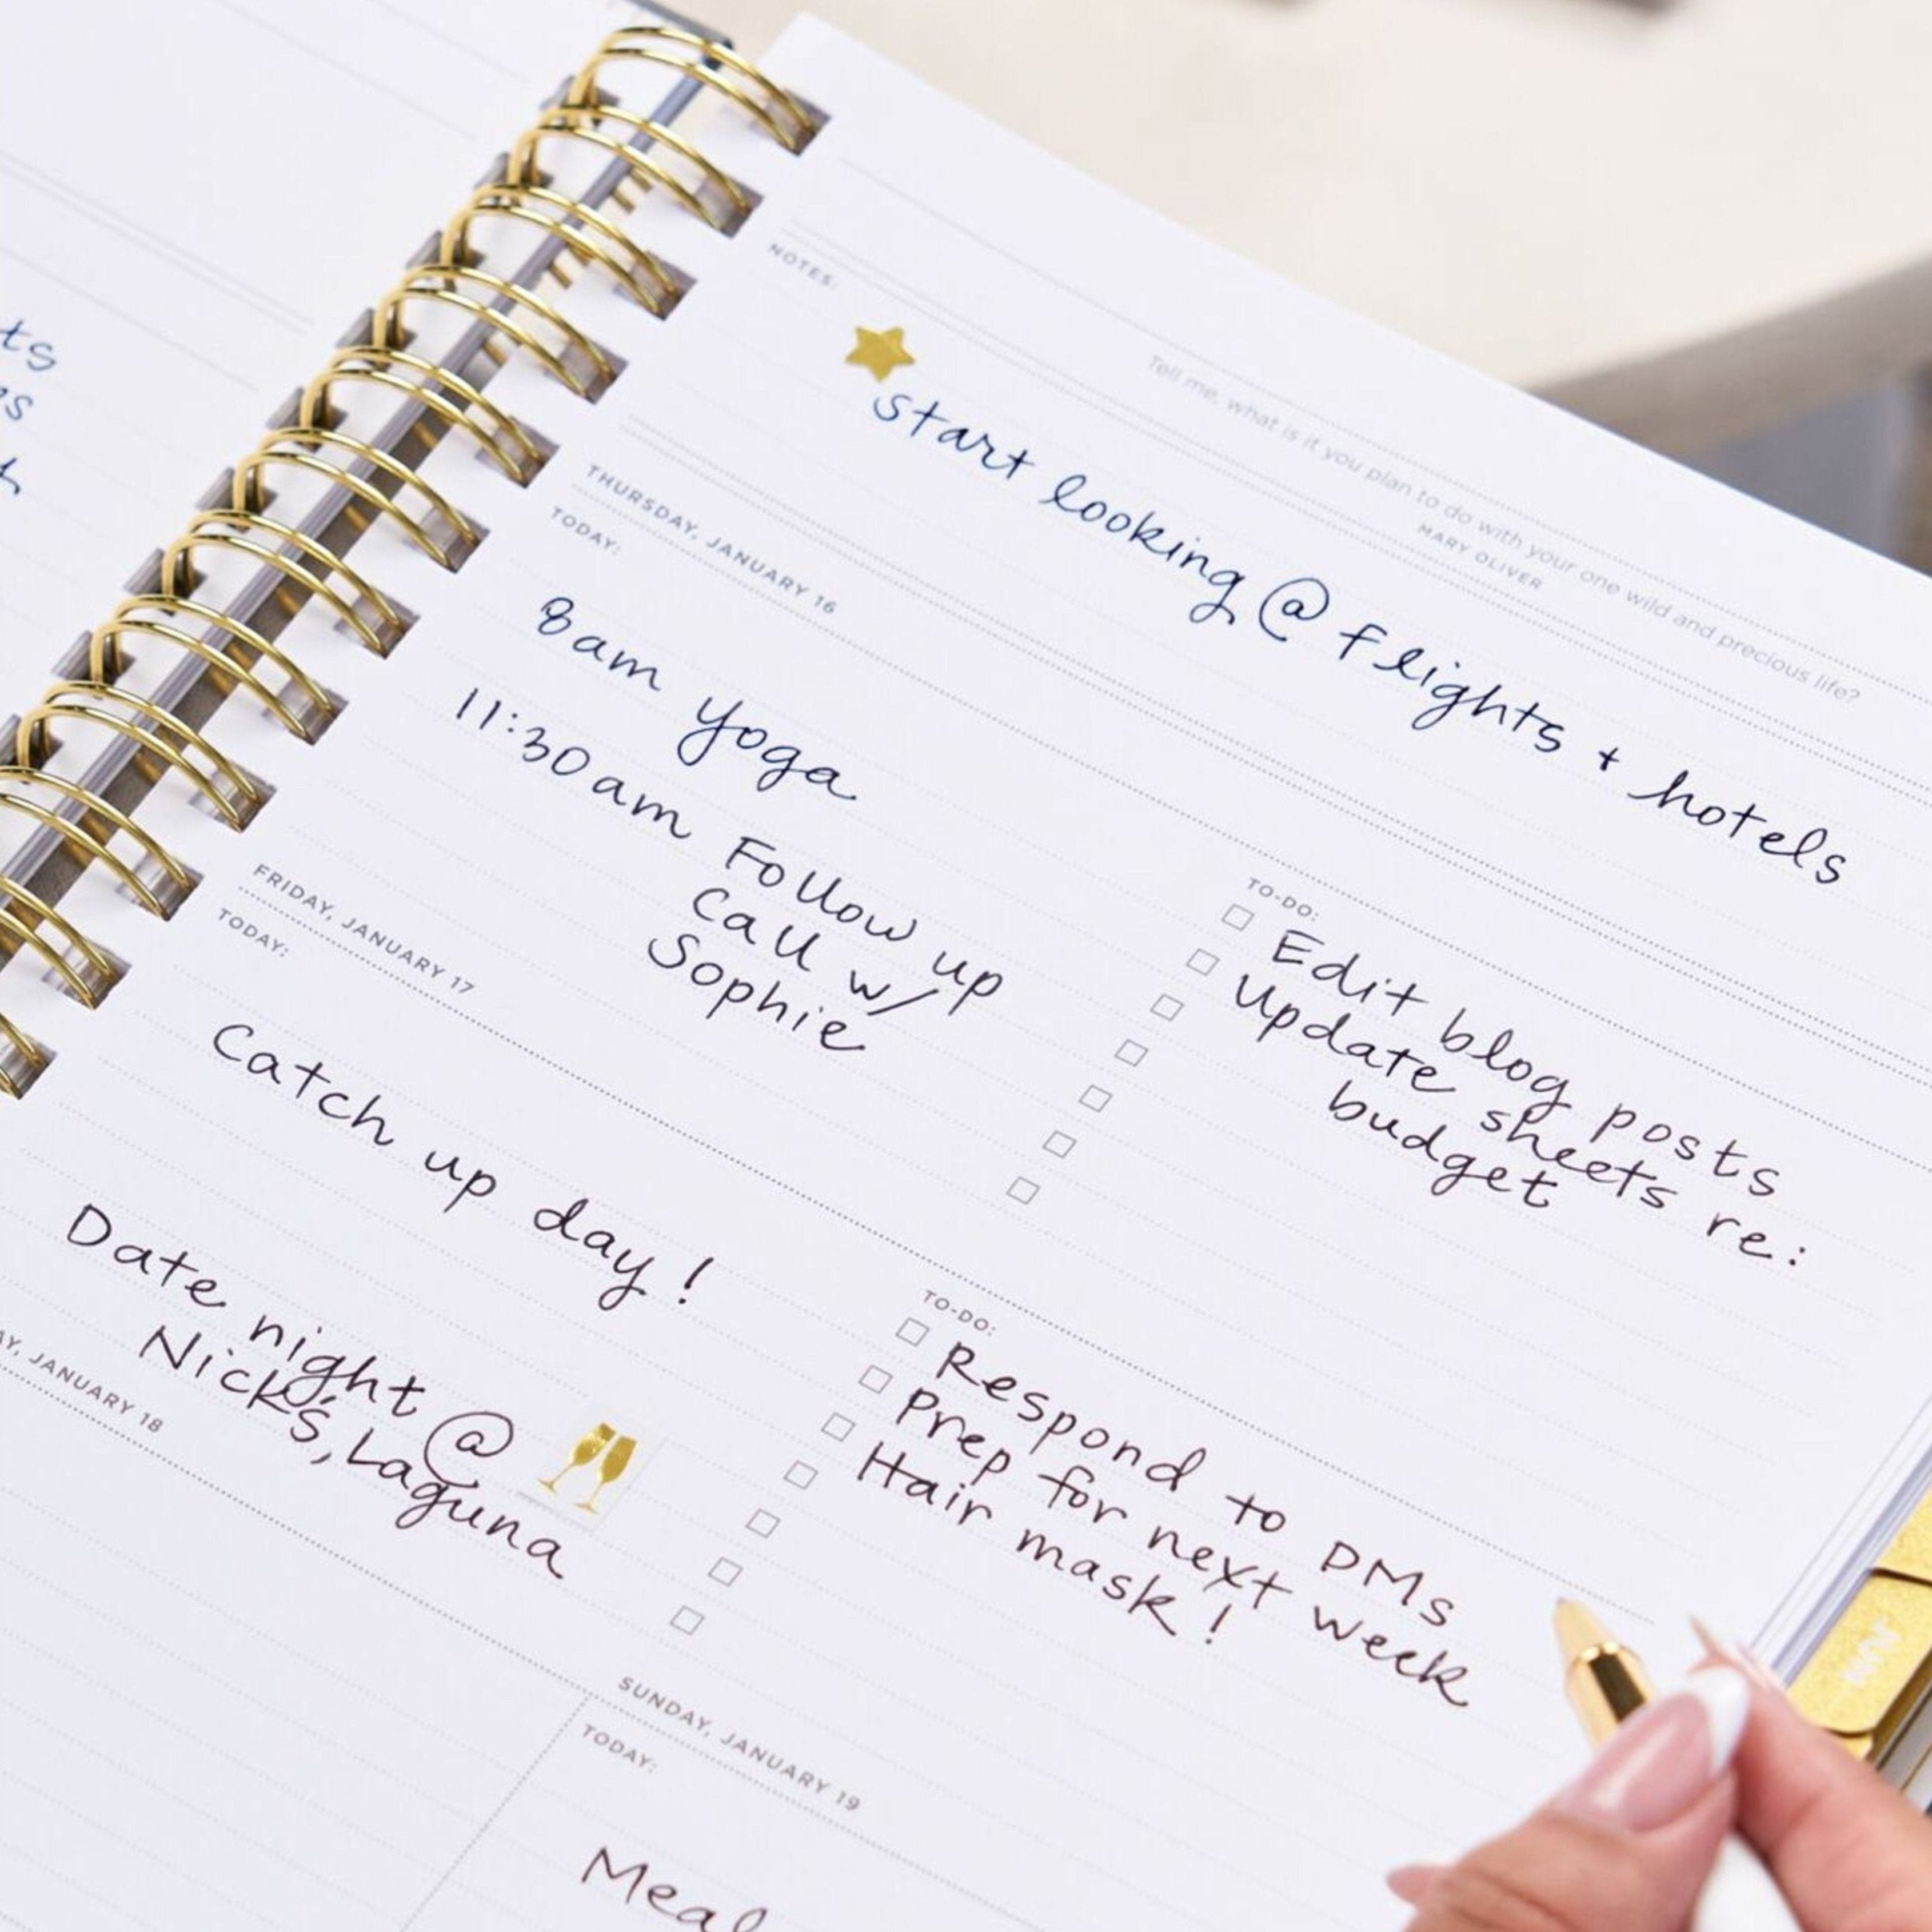 ts
NOTES:
Tell me, what is it you plan to do with your one wild and precious life?
MARY OLIVER
start looking @ flights + hotels
THURSDAY, JANUARY 16
TODAY:
8am yoga
11:30am Follow up
Call w/
Sophie
TO-DO:
Edit blog posts
Update sheets re:
budget
FRIDAY, JANUARY 17
TODAY:
Catch up day!
Date night @
Nick's, Laguna
TO-DO:
Respond to DMs
Prep for next week
Hair mask!
JANUARY 18
SUNDAY, JANUARY 19
TODAY:
Meal